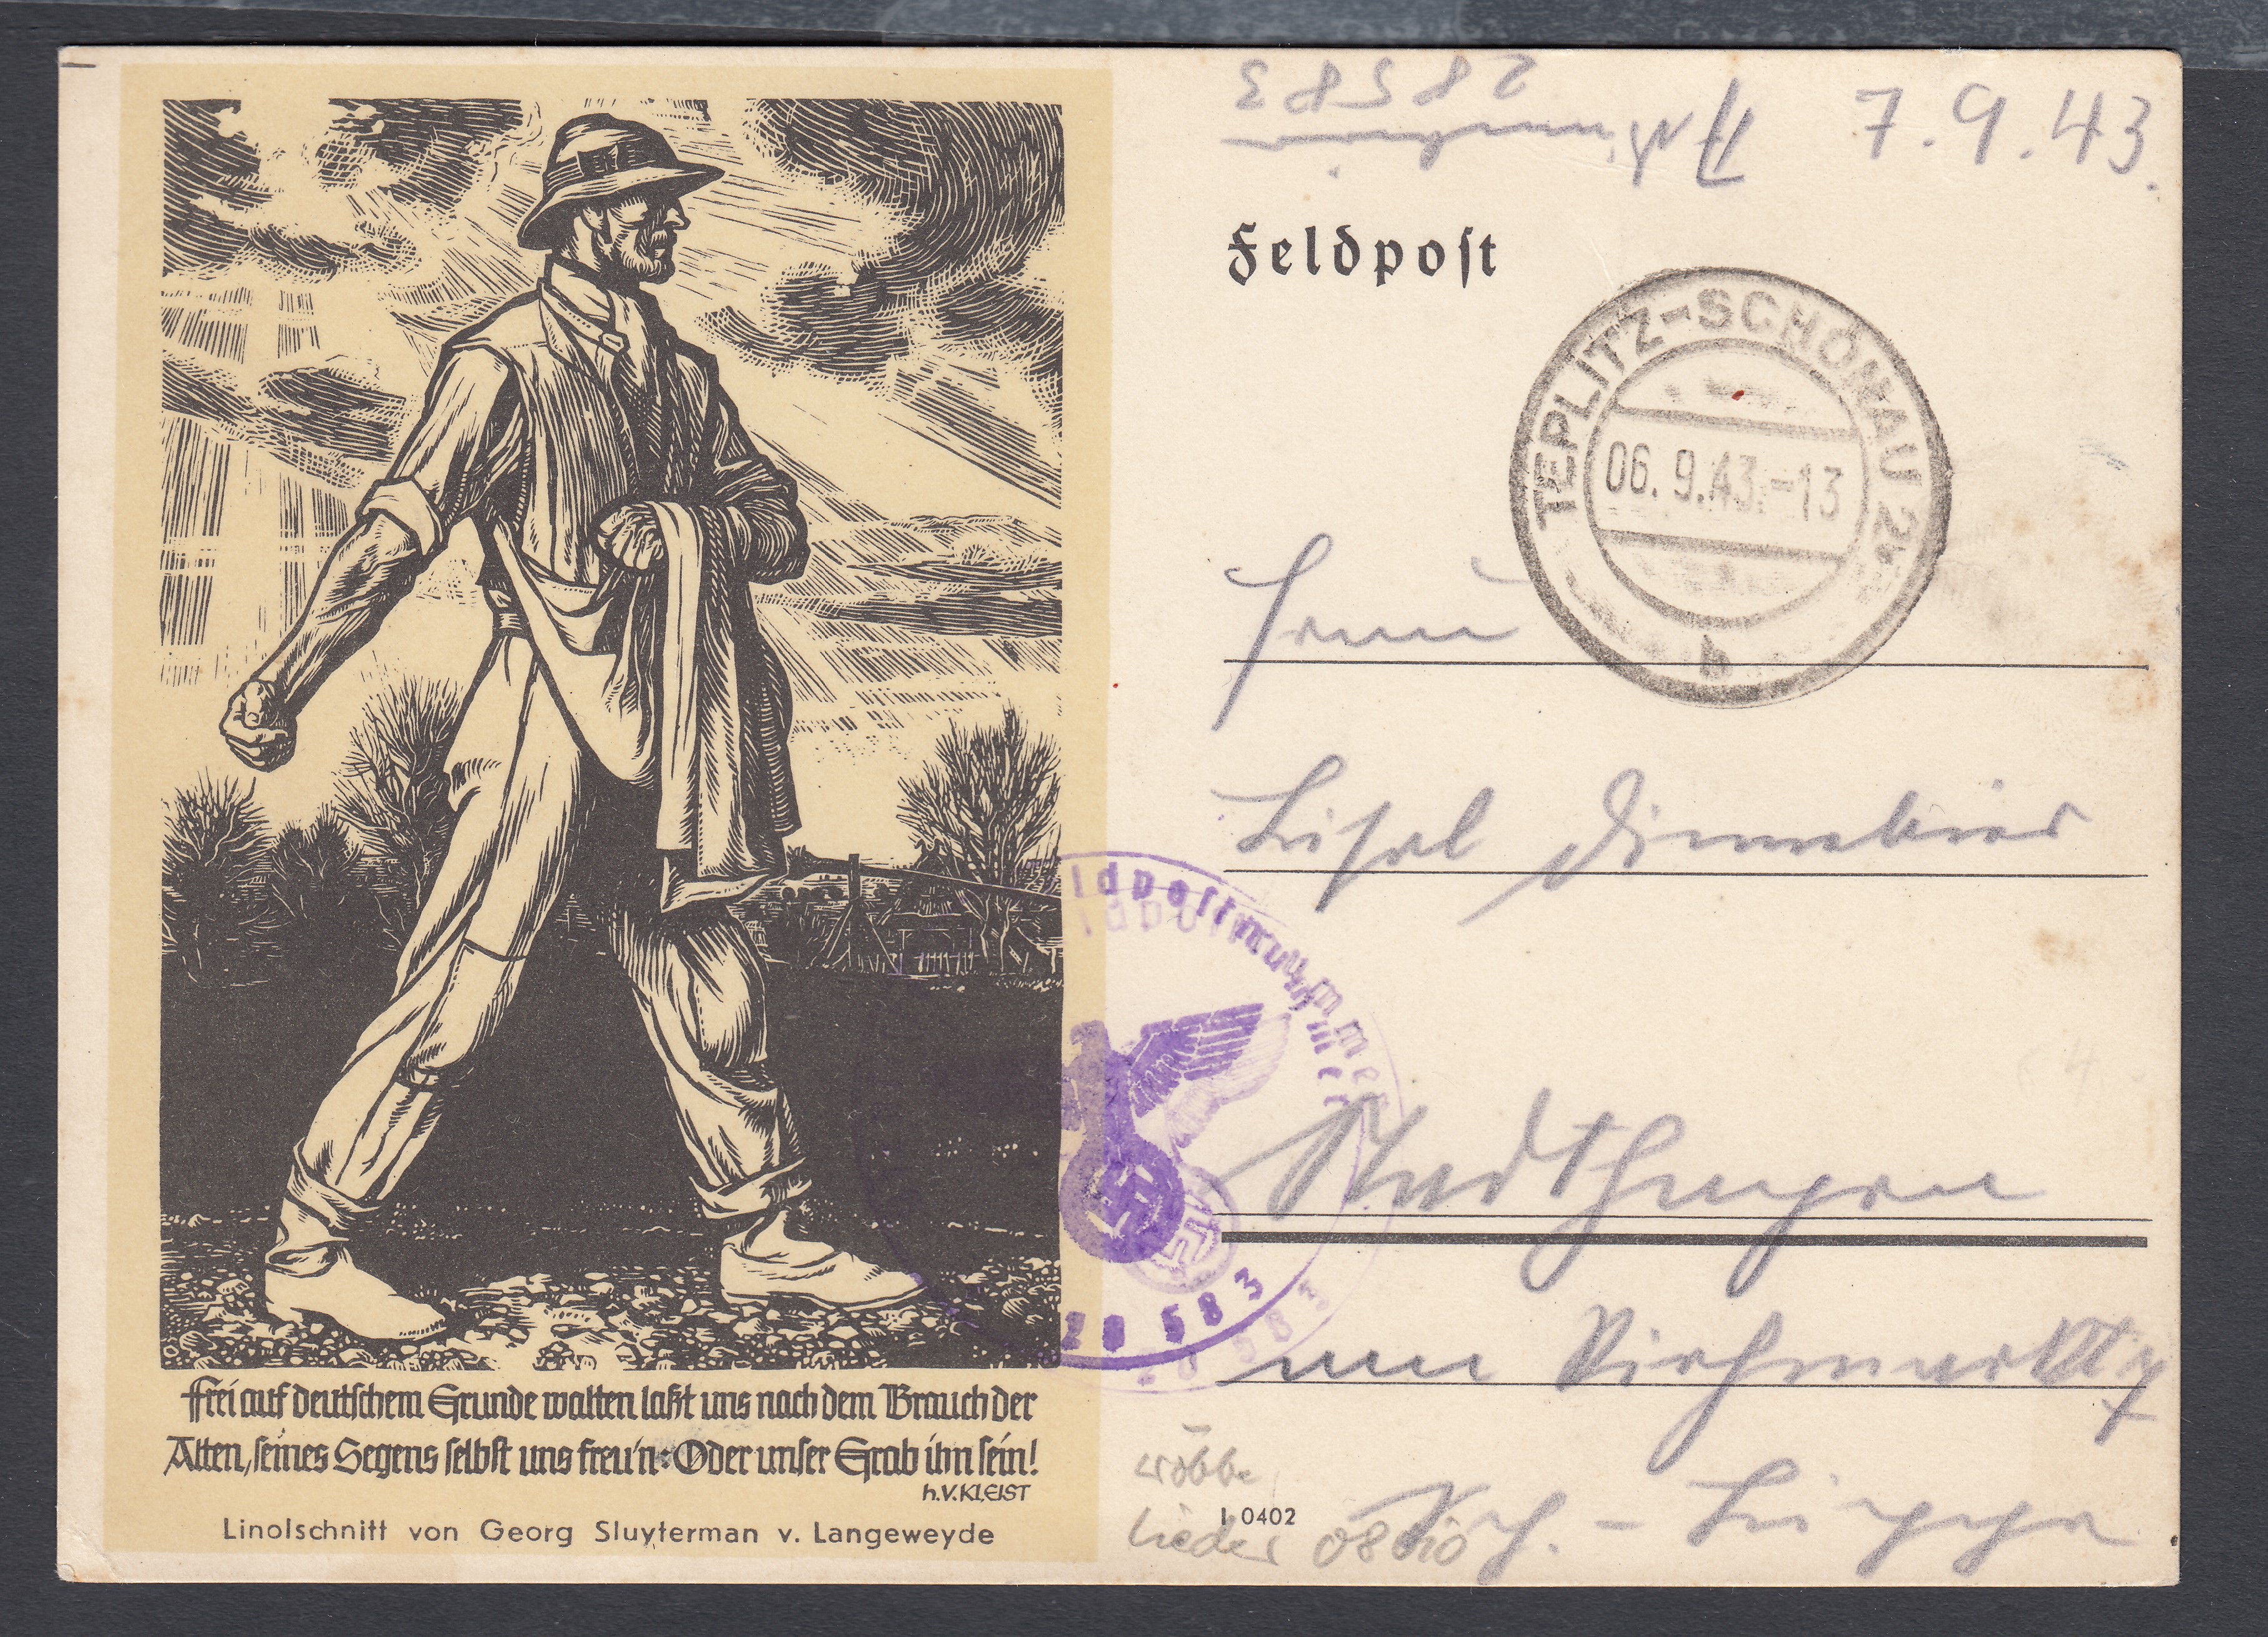 Frei auf deutschem Grunde walten laßt uns nach dem Brauch der
Alten, seines Segens selbst uns freu'n: Oder unser Grab ihm sein!
H.V.KLEIST
Linolschnitt von Georg Sluyterman v. Langeweyde
28583
7.9.43.
Feldpost
TEPLITZ-SCHÖNAU 2
06.9.43.-13
b
Frau
Lisel
Stadthagen
ldpostnummer
28583
Lieder
I 0402